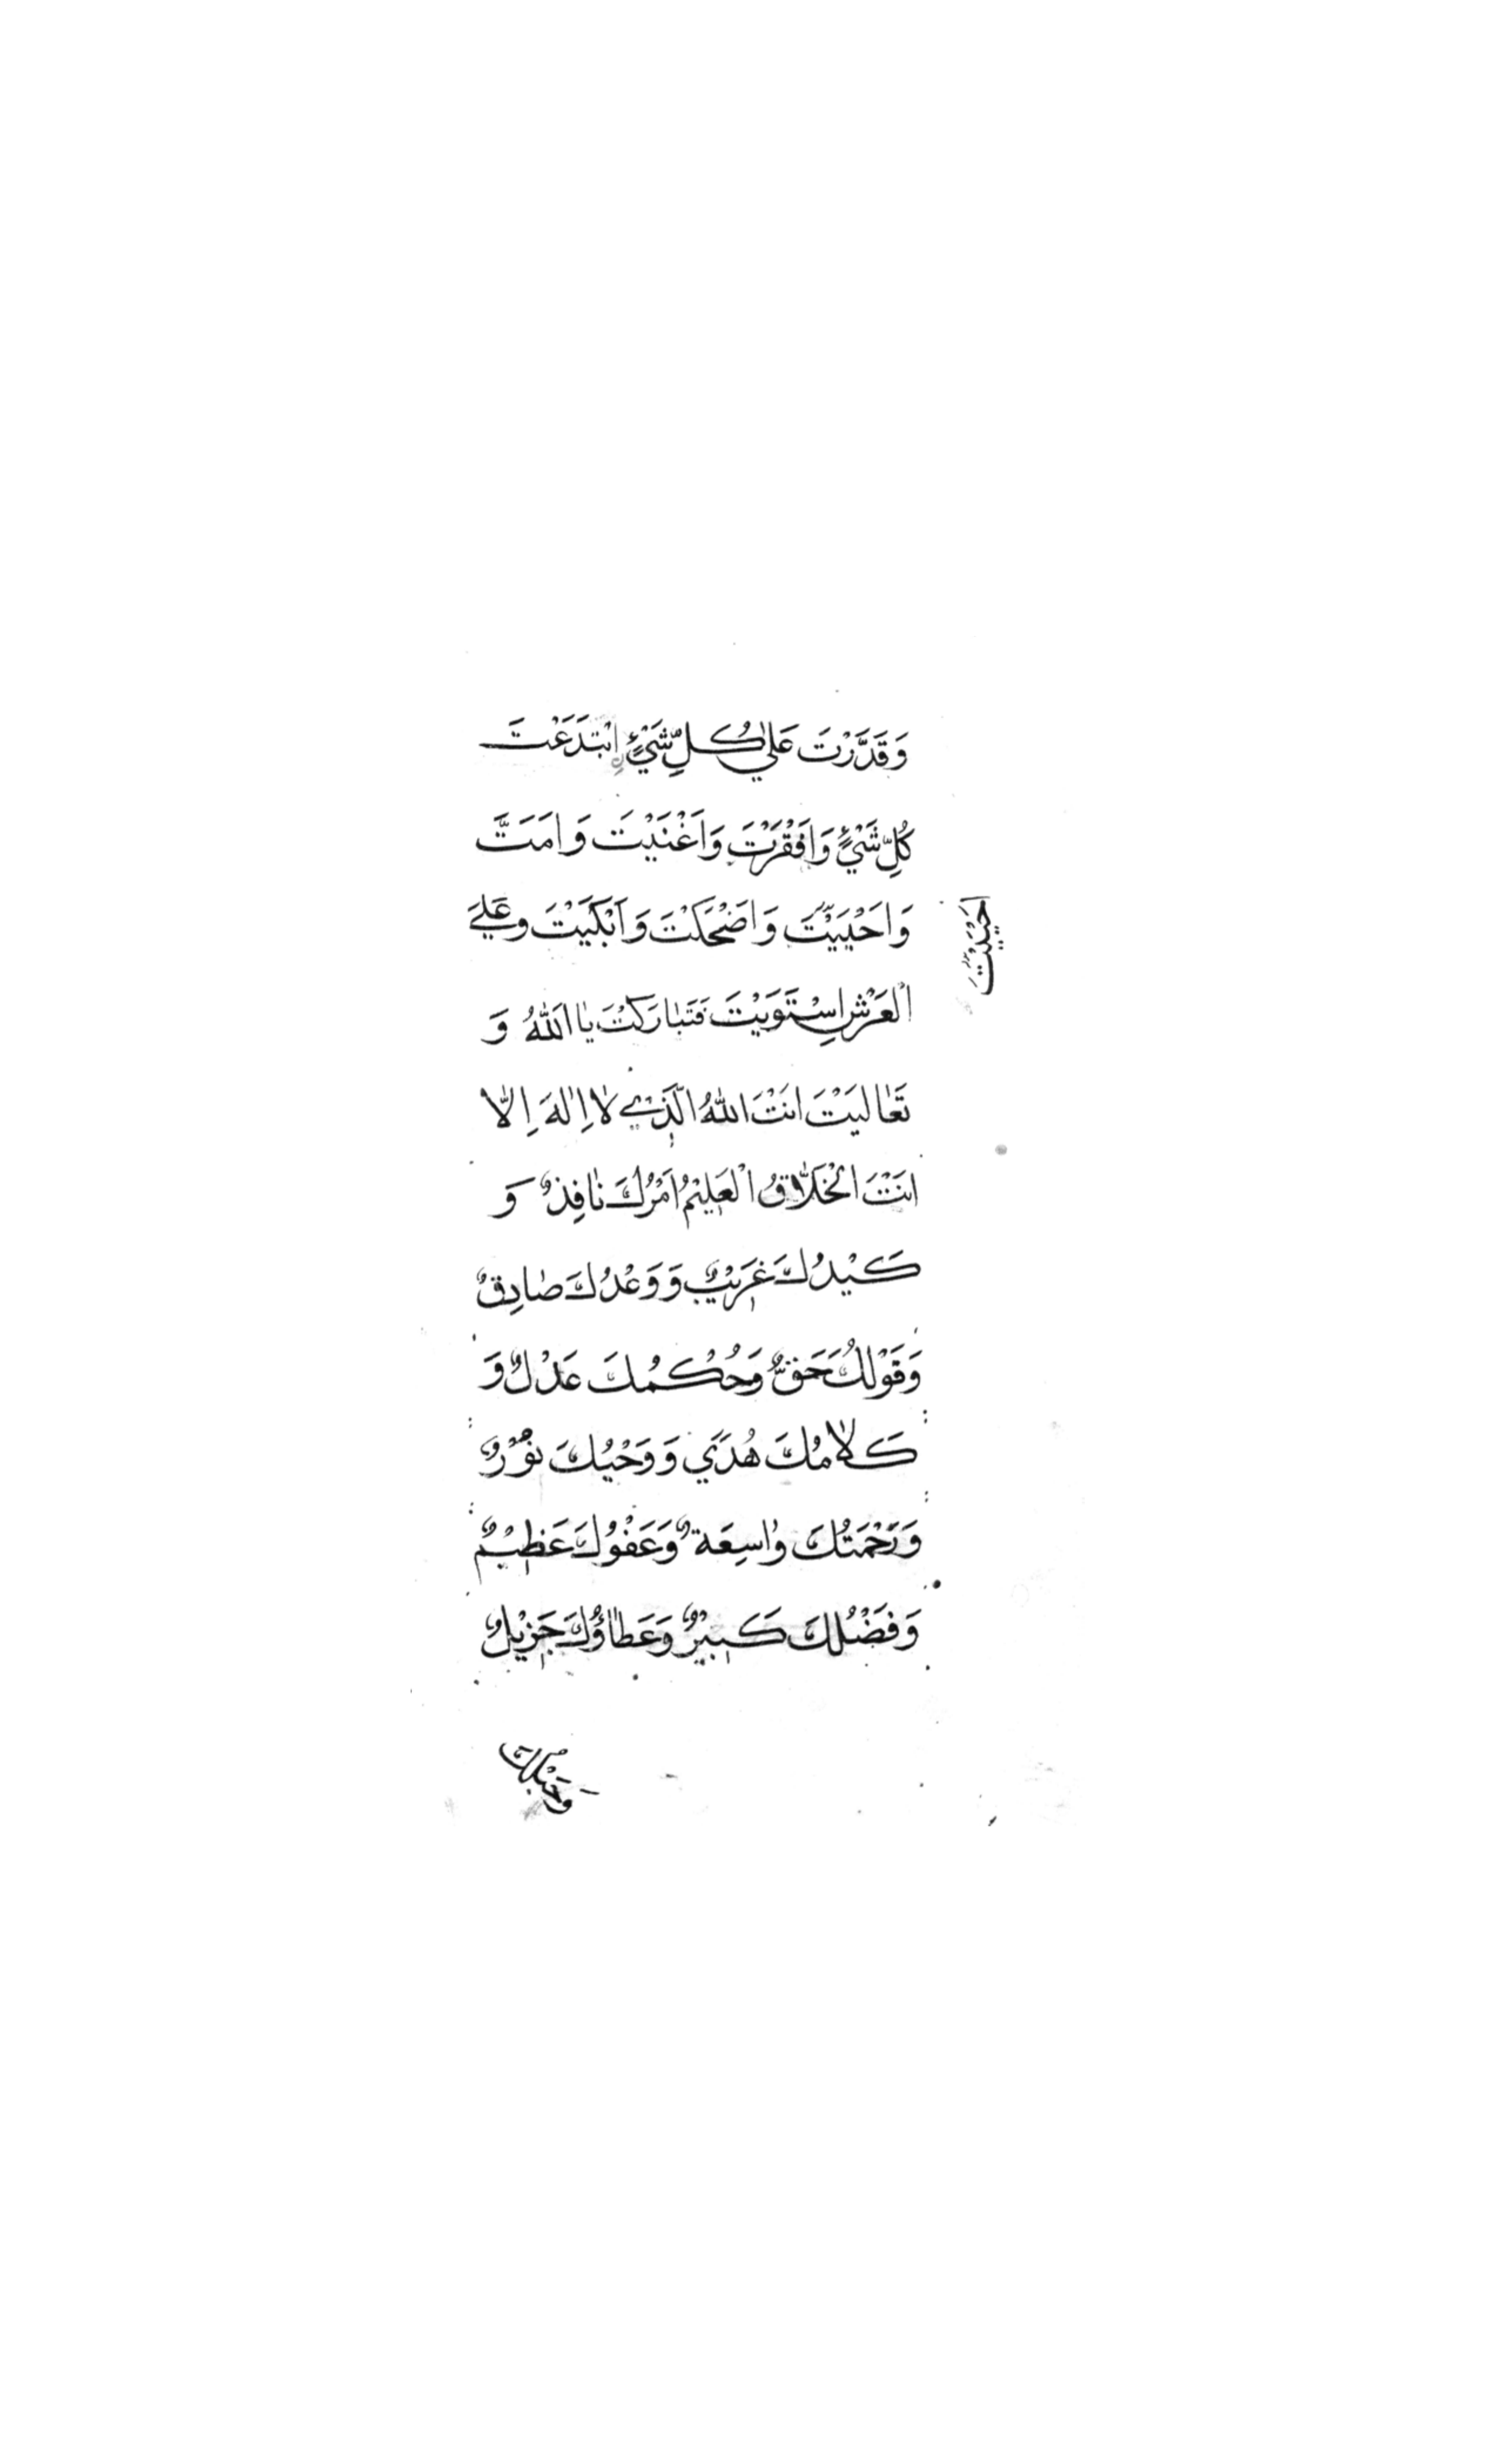 وَقَدَّرْتَ عَلٰي كُلِّ شَيْءٍ اِبْتَدَعْتَ
كُلِّ شَيْءٍ وَاَفْقَرْتَ وَاَغْنَيْتَ وَامَتَّ
وَاَحْيَيْتَ وَاَضْحَكْتَ وَاَبْكَيْتَ وَعَلَي
الْعَرْشِ اسْتَوَيْتَ فَتَبٰارَكْتَ يٰا اَللّٰهُ وَ
تَعٰالَيْتَ اَنْتَ اللّٰهُ الَّذِي لٰا اِلٰهَ اِلّٰا
اَنْتَ الْخَلّٰاقُ الْعَلِيْمُ اَمْرُكَ نٰافِذٌ وَ
كَيْدُكَ غَرِيْبٌ وَ وَعْدُكَ صٰادِقٌ
وَقَوْلُكَ حَقٌّ وَحُكْمُكَ عَدْلٌ وَ
كَلٰامُكَ هُدَي وَ وَحْيُكَ نُوْرٌ
وَرَحْمَتُكَ وٰاسِعَةٌ وَعَفْوُكَ عَظِيْمٌ
وَفَضْلُكَ كَبِيْرٌ وَعَطٰاؤُكَ جَزِيْلٌ
اَحْيَيْتَ